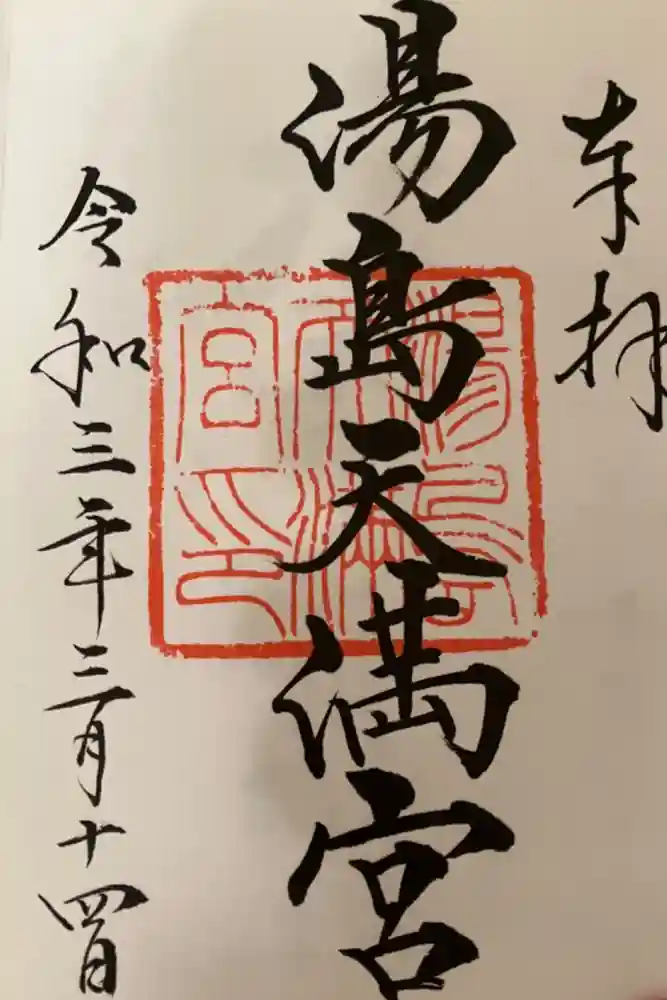 奉拝
湯島天満宮
令和三年三月十四日
湯島
天満
宮印